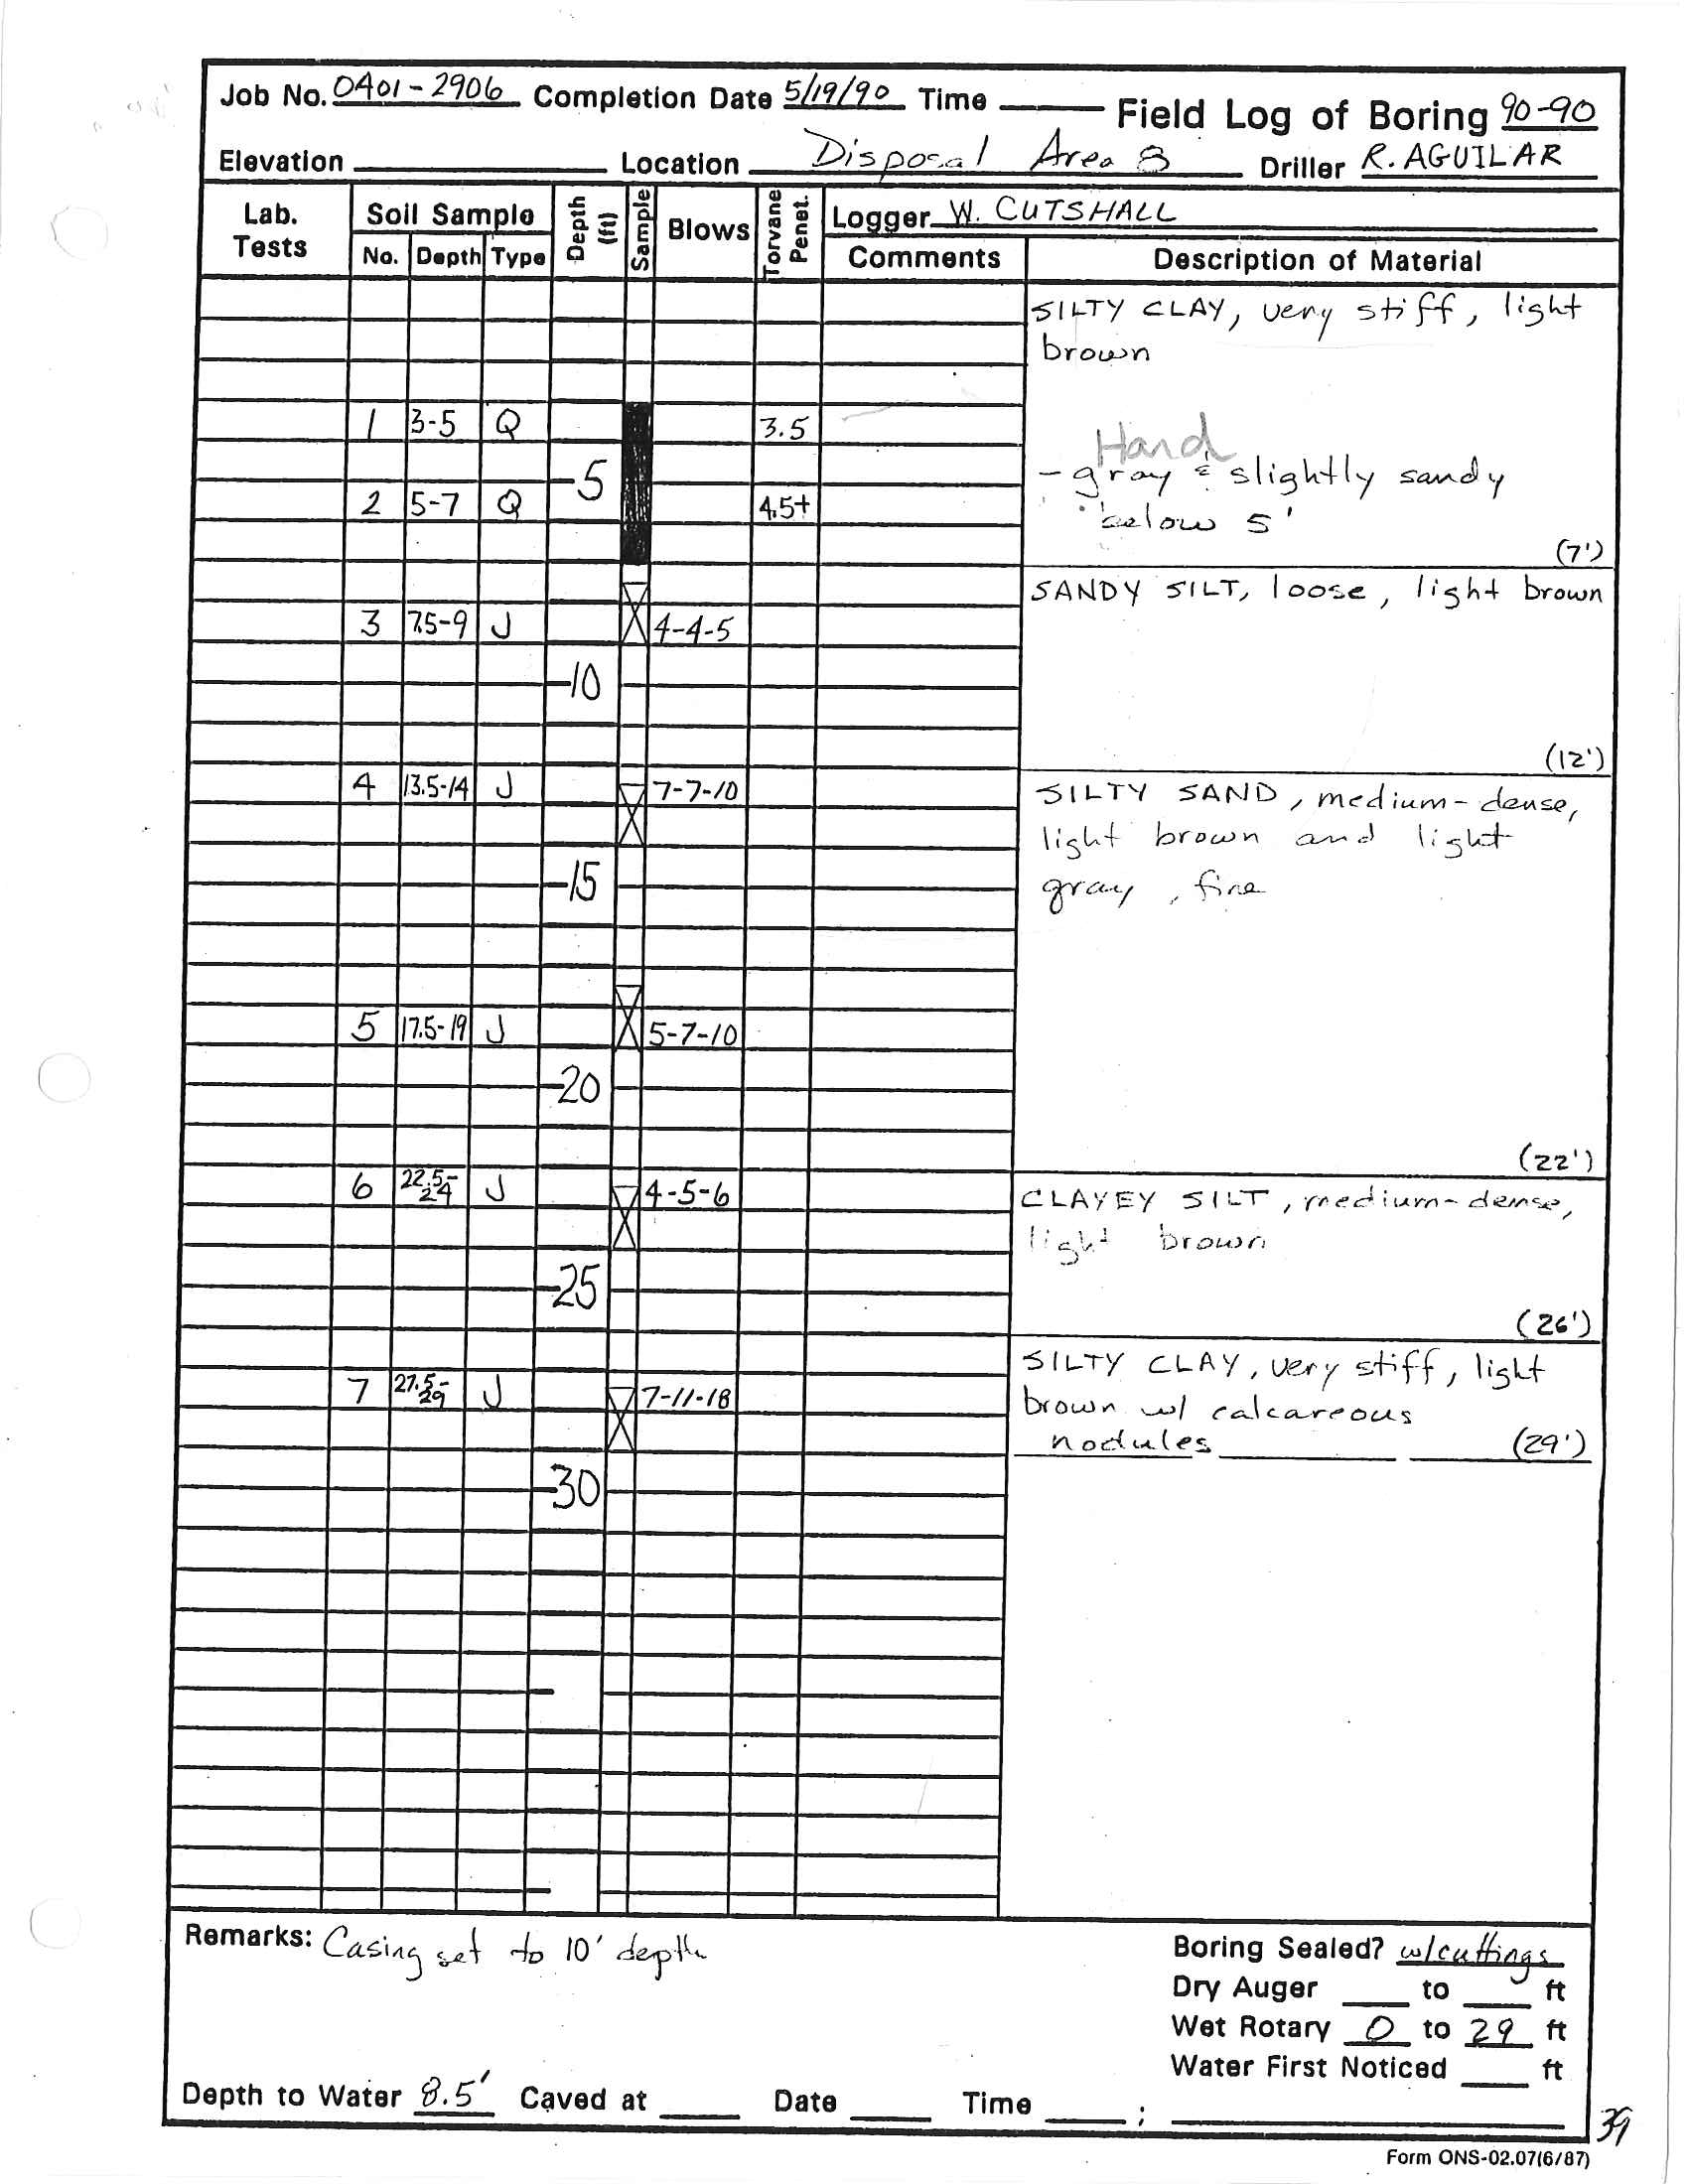 Job No. 0401-2906 Completion Date 5/19/90 Time Field Log of Boring 90-90
Elevation Location Disposal Area 8 Driller R. AGUILAR
Lab. Tests Soil Sample Depth (ft) Sample Blows Torvane Penet. Logger W. CUTSHALL
No. Depth Type Comments Description of Material
SILTY CLAY, very stiff, light
brown
1 3-5 Q 3.5
Hard
-5 - gray & slightly sandy
2 5-7 Q 4.5+ below 5'
(7')
SANDY SILT, loose, light brown
3 7.5-9 J 4-4-5
-10
(12')
4 13.5-14 J 7-7-10 SILTY SAND, medium-dense,
light brown and light
-15 gray, fine
5 17.5-19 J 5-7-10
-20
(22')
6 22.5-24 J 4-5-6 CLAYEY SILT, medium-dense,
light brown
-25
(26')
SILTY CLAY, very stiff, light
7 27.5-29 J 7-11-18 brown w/ calcareous
nodules (29')
-30
Remarks: Casing set to 10' depth Boring Sealed? w/cuttings
Dry Auger to ft
Wet Rotary 0 to 29 ft
Water First Noticed ft
Depth to Water 8.5' Caved at Date Time ;
39
Form ONS-02.07(6/87)